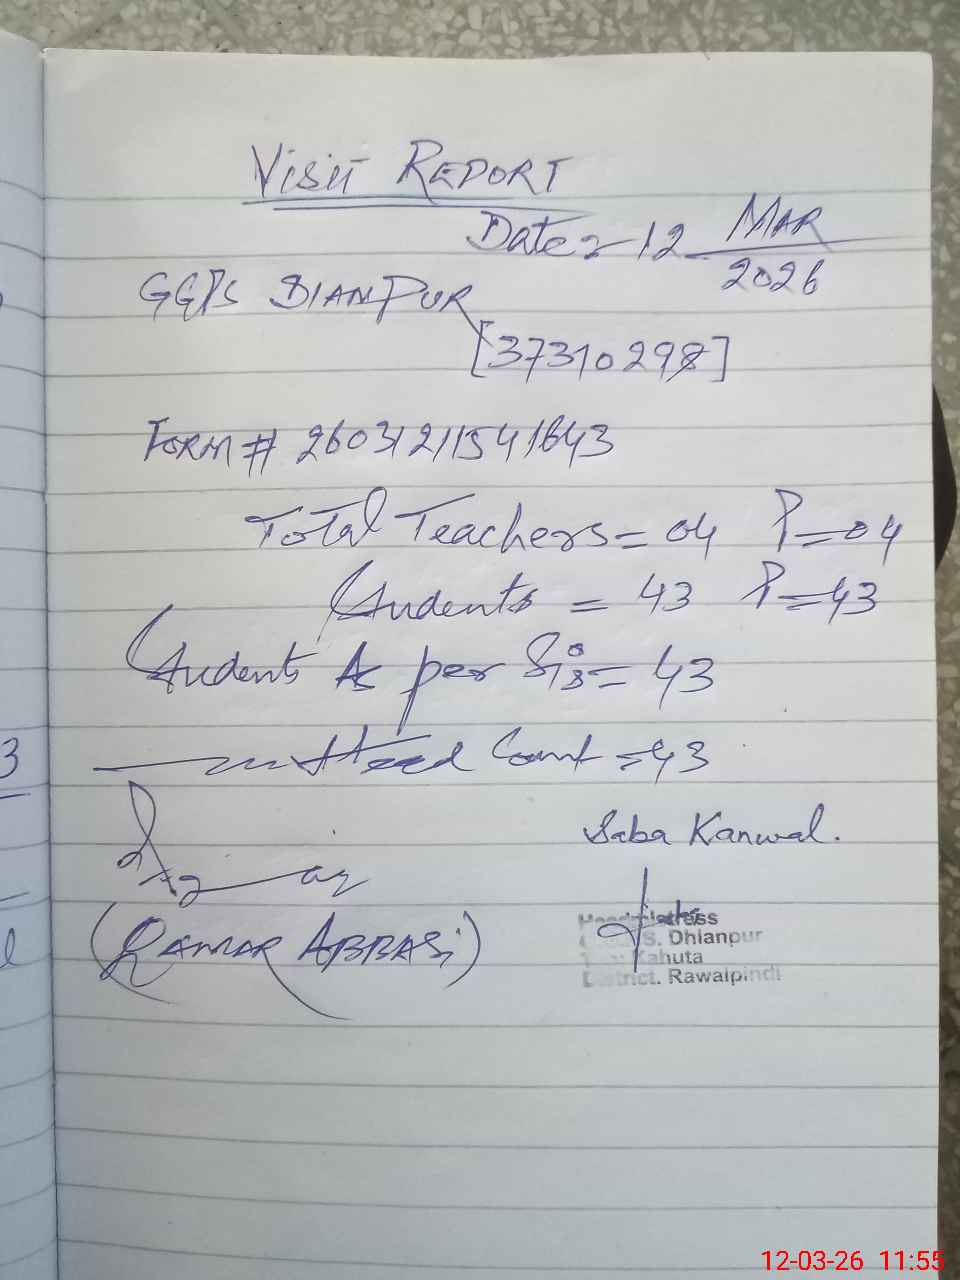 VISIT REPORT
Date = 12 MAR 2026
GGPS DIANPUR
[37310298]
FORM # 26031211541643
Total Teachers = 04 P = 04
Students = 43 P = 43
Students As per Sis = 43
Head Count = 43
Saba Kanwal.
(QAMAR ABBASI)
Headmistress
S. Dhianpur
Kahuta
District. Rawalpindi
3
12-03-26 11:55